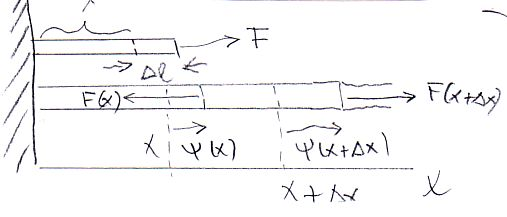 F
Δl
F(x) F(x+Δx)
x ψ(x) ψ(x+Δx)
x+Δx x